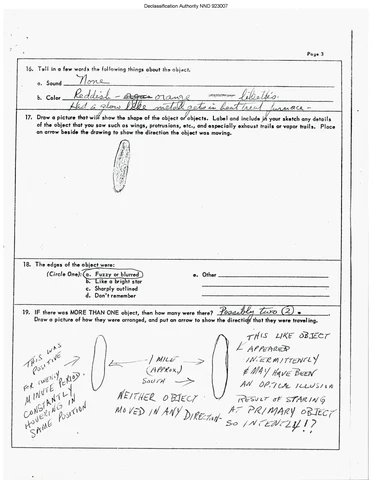 Declassification Authority NND 923007
Page 3
16. Tell in a few words the following things about the object.
a. Sound None
b. Color Reddish - orange
Had a glow like metal gets in heat treat furnace -
17. Draw a picture that will show the shape of the object or objects. Label and include in your sketch any details
of the object that you saw such as wings, protrusions, etc., and especially exhaust trails or vapor trails. Place
an arrow beside the drawing to show the direction the object was moving.
18. The edges of the object were:
(Circle One): a. Fuzzy or blurred
b. Like a bright star
c. Sharply outlined
d. Don't remember
e. Other
19. IF there was MORE THAN ONE object, then how many were there? Possibly two (2).
Draw a picture of how they were arranged, and put an arrow to show the direction that they were traveling.
THIS WAS
POSITIVE
FOR TWENTY
MINUTE PERIOD.
CONSTANTLY
HOVERING IN
SAME POSITION
1 MILE
(APPROX.)
SOUTH
NEITHER OBJECT
MOVED IN ANY DIRECTION-
THIS LIKE OBJECT
APPEARED
INTERMITTENTLY
& MAY HAVE BEEN
AN OPTICAL ILLUSION
RESULT OF STARING
AT PRIMARY OBJECT
SO INTENTLY!?